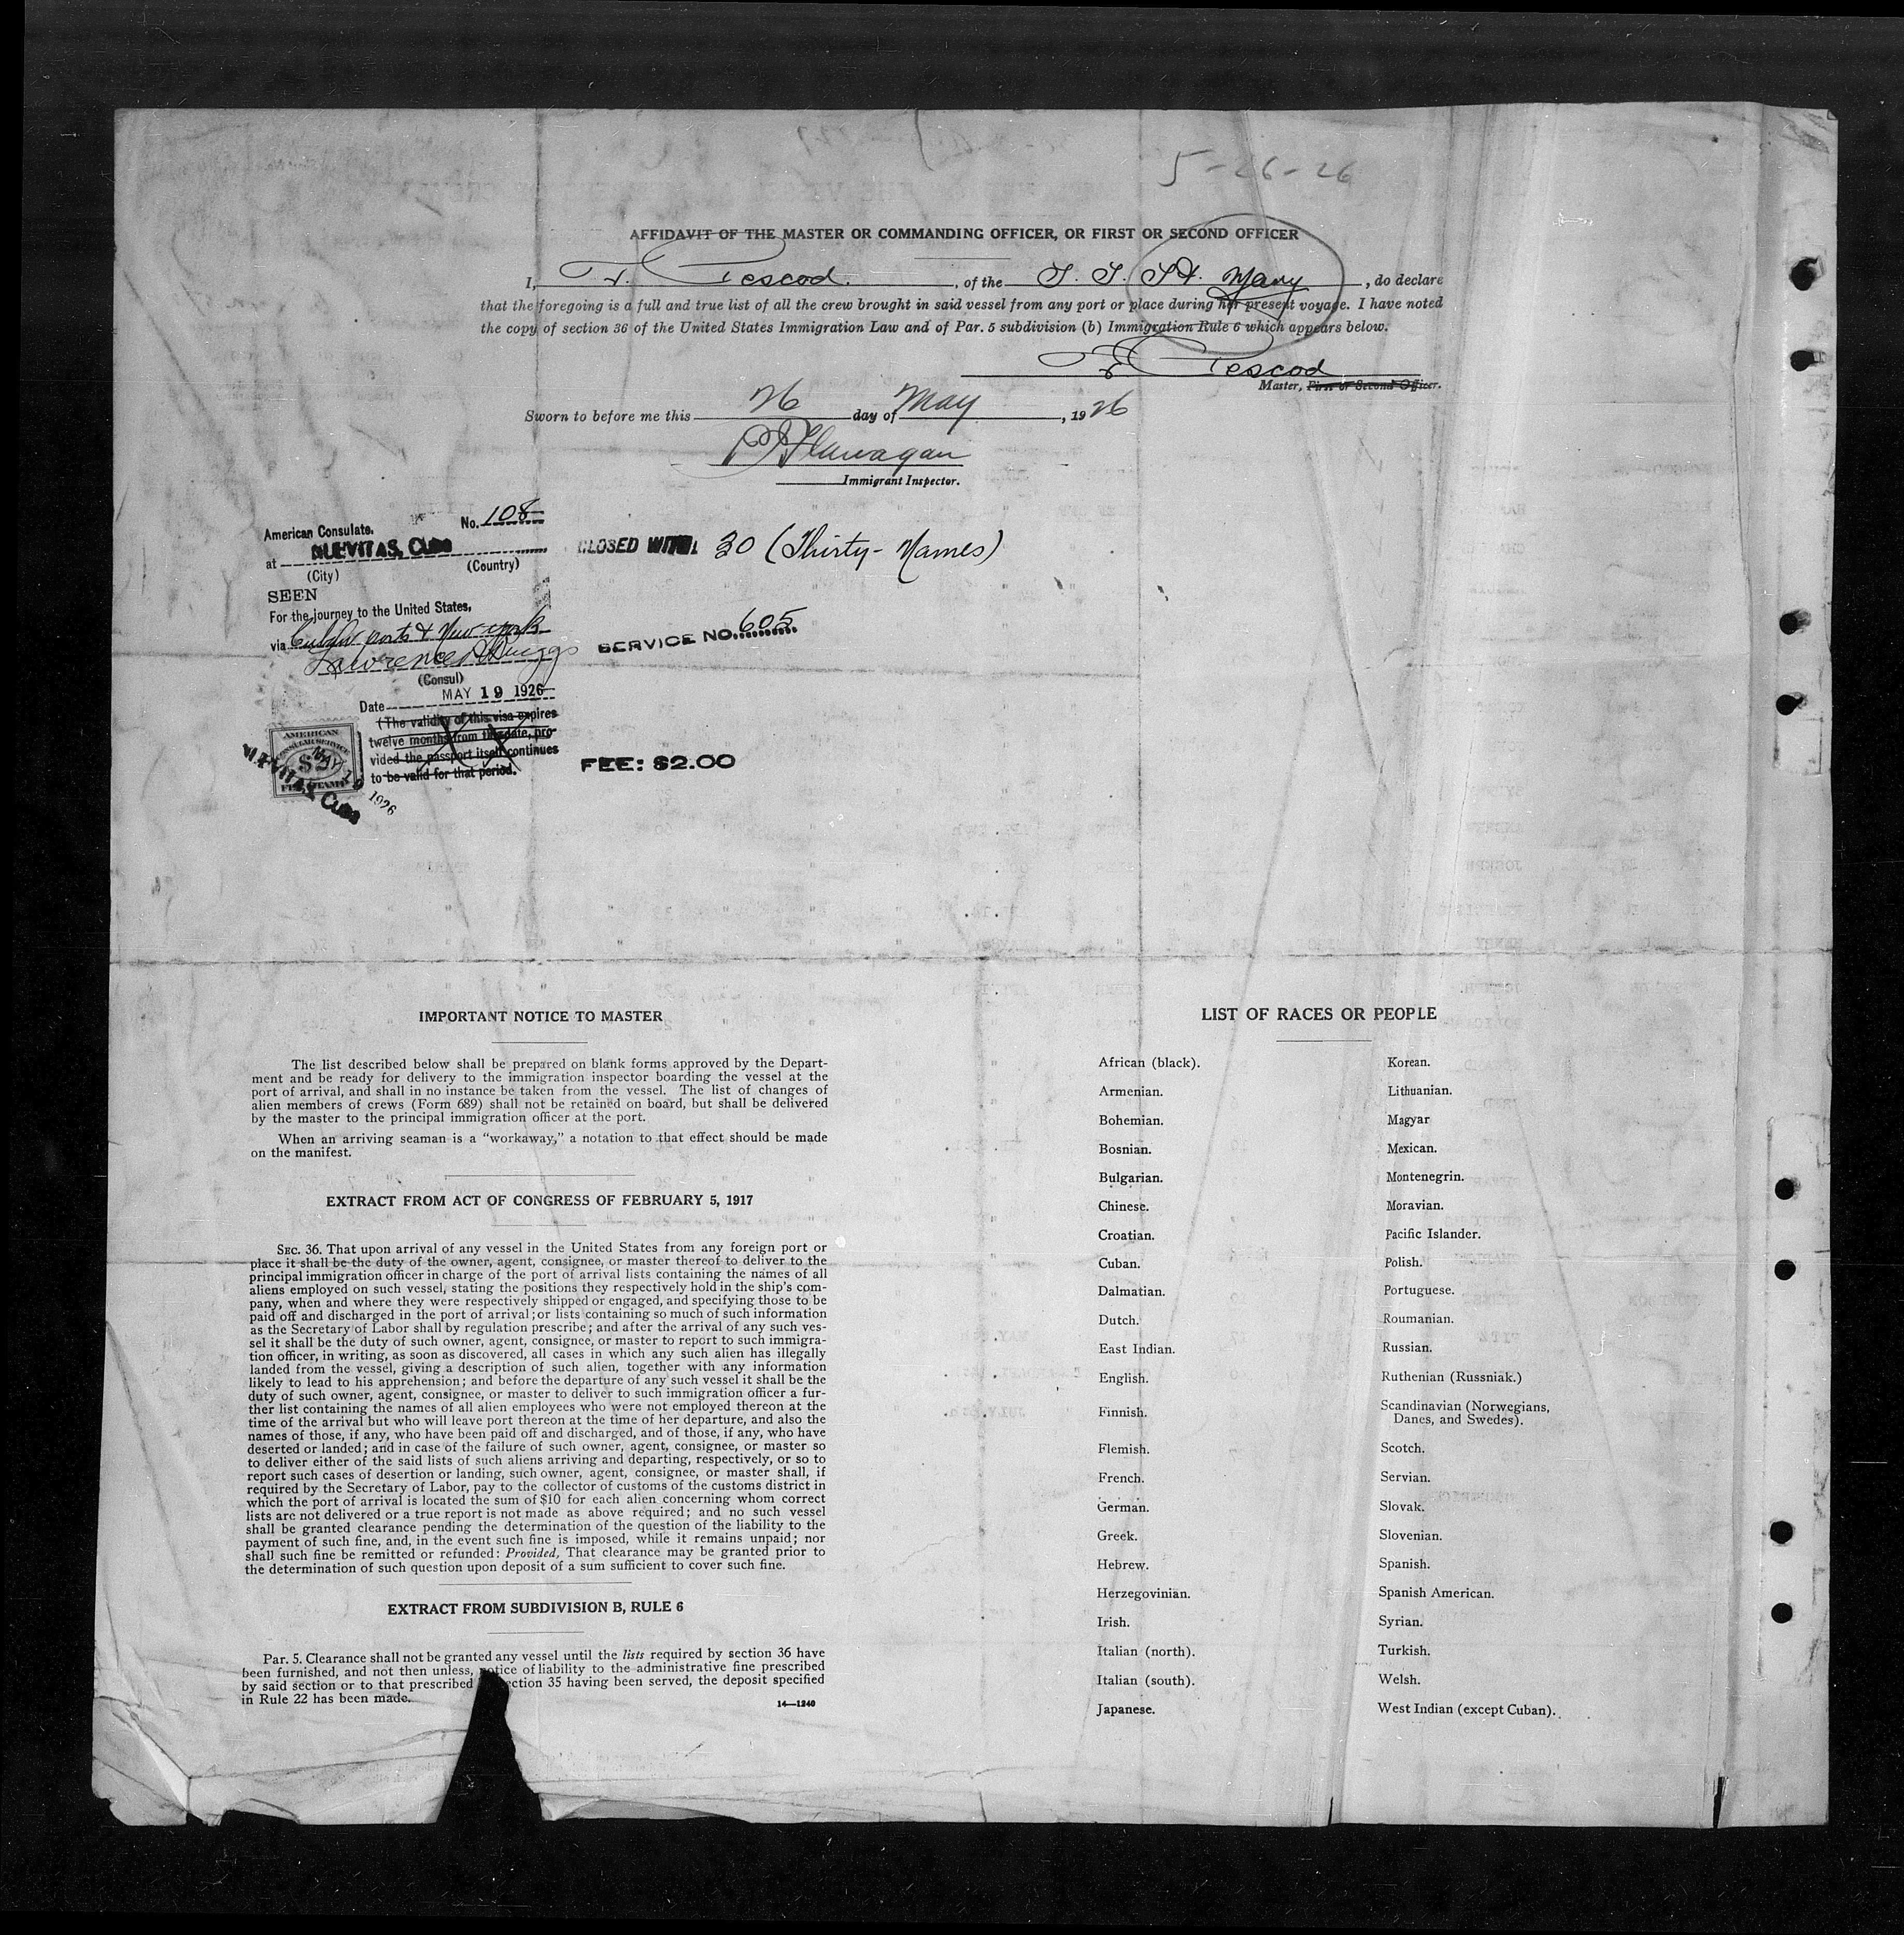 5-26-26
AFFIDAVIT OF THE MASTER OR COMMANDING OFFICER, OR FIRST OR SECOND OFFICER
I, F. Pescod. , of the S. S. St. Mary , do declare
that the foregoing is a full and true list of all the crew brought in said vessel from any port or place during her present voyage. I have noted
the copy of section 36 of the United States Immigration Law and of Par. 5 subdivision (b) Immigration Rule 6 which appears below.
F Pescod
Master, First or Second Officer.
Sworn to before me this 26 day of May , 1926
Flanagan
Immigrant Inspector.
American Consulate. No. 108
at NUEVITAS, Cuba
(City) (Country)
CLOSED WITH 30 (Thirty-Names)
SEEN
For the journey to the United States,
via Cuban ports & New York
Lawrence P Briggs
(Consul)
SERVICE NO. 605
Date MAY 19 1926
(The validity of this visa expires
twelve months from this date, pro-
vided the passport itself continues
to be valid for that period.
AMERICAN
CONSULAR SERVICE
$2
FEE STAMP
NUEVITAS, Cuba
MAY 19 1926
FEE: $2.00
IMPORTANT NOTICE TO MASTER
The list described below shall be prepared on blank forms approved by the Depart-
ment and be ready for delivery to the immigration inspector boarding the vessel at the
port of arrival, and shall in no instance be taken from the vessel. The list of changes of
alien members of crews (Form 689) shall not be retained on board, but shall be delivered
by the master to the principal immigration officer at the port.
When an arriving seaman is a "workaway," a notation to that effect should be made
on the manifest.
EXTRACT FROM ACT OF CONGRESS OF FEBRUARY 5, 1917
SEC. 36. That upon arrival of any vessel in the United States from any foreign port or
place it shall be the duty of the owner, agent, consignee, or master thereof to deliver to the
principal immigration officer in charge of the port of arrival lists containing the names of all
aliens employed on such vessel, stating the positions they respectively hold in the ship's com-
pany, when and where they were respectively shipped or engaged, and specifying those to be
paid off and discharged in the port of arrival; or lists containing so much of such information
as the Secretary of Labor shall by regulation prescribe; and after the arrival of any such ves-
sel it shall be the duty of such owner, agent, consignee, or master to report to such immigra-
tion officer, in writing, as soon as discovered, all cases in which any such alien has illegally
landed from the vessel, giving a description of such alien, together with any information
likely to lead to his apprehension; and before the departure of any such vessel it shall be the
duty of such owner, agent, consignee, or master to deliver to such immigration officer a fur-
ther list containing the names of all alien employees who were not employed thereon at the
time of the arrival but who will leave port thereon at the time of her departure, and also the
names of those, if any, who have been paid off and discharged, and of those, if any, who have
deserted or landed; and in case of the failure of such owner, agent, consignee, or master so
to deliver either of the said lists of such aliens arriving and departing, respectively, or so to
report such cases of desertion or landing, such owner, agent, consignee, or master shall, if
required by the Secretary of Labor, pay to the collector of customs of the customs district in
which the port of arrival is located the sum of $10 for each alien concerning whom correct
lists are not delivered or a true report is not made as above required; and no such vessel
shall be granted clearance pending the determination of the question of the liability to the
payment of such fine, and, in the event such fine is imposed, while it remains unpaid; nor
shall such fine be remitted or refunded: Provided, That clearance may be granted prior to
the determination of such question upon deposit of a sum sufficient to cover such fine.
EXTRACT FROM SUBDIVISION B, RULE 6
Par. 5. Clearance shall not be granted any vessel until the lists required by section 36 have
been furnished, and not then unless, notice of liability to the administrative fine prescribed
by said section or to that prescribed section 35 having been served, the deposit specified
in Rule 22 has been made.
14—1240
LIST OF RACES OR PEOPLE
African (black).
Armenian.
Bohemian.
Bosnian.
Bulgarian.
Chinese.
Croatian.
Cuban.
Dalmatian.
Dutch.
East Indian.
English.
Finnish.
Flemish.
French.
German.
Greek.
Hebrew.
Herzegovinian.
Irish.
Italian (north).
Italian (south).
Japanese.
Korean.
Lithuanian.
Magyar
Mexican.
Montenegrin.
Moravian.
Pacific Islander.
Polish.
Portuguese.
Roumanian.
Russian.
Ruthenian (Russniak.)
Scandinavian (Norwegians,
Danes, and Swedes).
Scotch.
Servian.
Slovak.
Slovenian.
Spanish.
Spanish American.
Syrian.
Turkish.
Welsh.
West Indian (except Cuban).